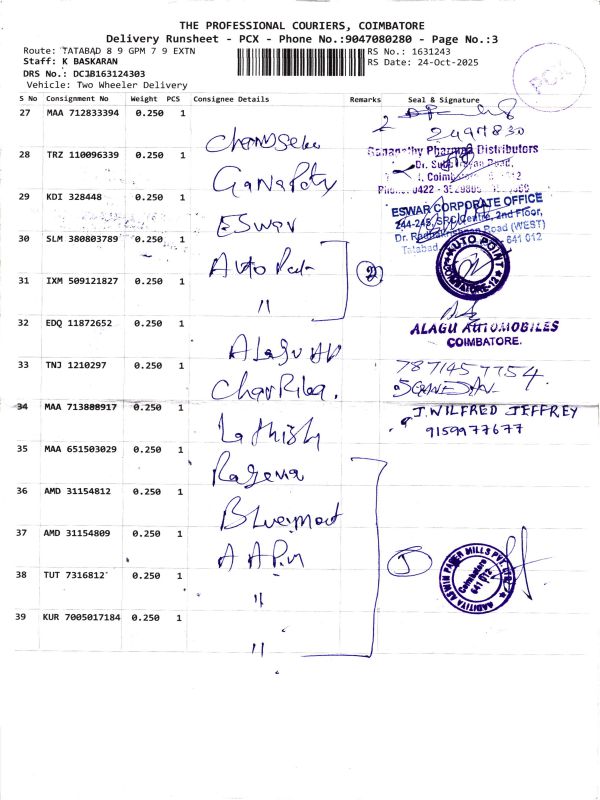 THE PROFESSIONAL COURIERS, COIMBATORE
Delivery Runsheet - PCX - Phone No.:9047080280 - Page No.:3
Route: TATABAD 8 9 GPM 7 9 EXTN
RS No.: 1631243
Staff: K BASKARAN
RS Date: 24-Oct-2025
DRS No.: DCJB163124303
Vehicle: Two Wheeler Delivery
PCX
S No Consignment No Weight PCS Consignee Details Remarks Seal & Signature
27 MAA 712833394 0.250 1
28 TRZ 110096339 0.250 1 Ganapaty
Pharma Distributors
29 KDI 328448 0.250 1 Eswar
ESWAR CORPORATE OFFICE
244-248, 2nd Floor,
Road (WEST)
641 012
30 SLM 380803789 0.250 1 Auto
AUTO POINT
COIMBATORE-12
2
31 IXM 509121827 0.250 1 "
32 EDQ 11872652 0.250 1 Alagu
ALAGU AUTOMOBILES
COIMBATORE.
33 TNJ 1210297 0.250 1
7871457754
34 MAA 713888917 0.250 1
J. WILFRED JEFFREY
9159977677
35 MAA 651503029 0.250 1
36 AMD 31154812 0.250 1
37 AMD 31154809 0.250 1
5
ADITYA ASWIN PAPER MILLS PVT. LTD.
Coimbatore
641 012
38 TUT 7316812 0.250 1 "
39 KUR 7005017184 0.250 1 "